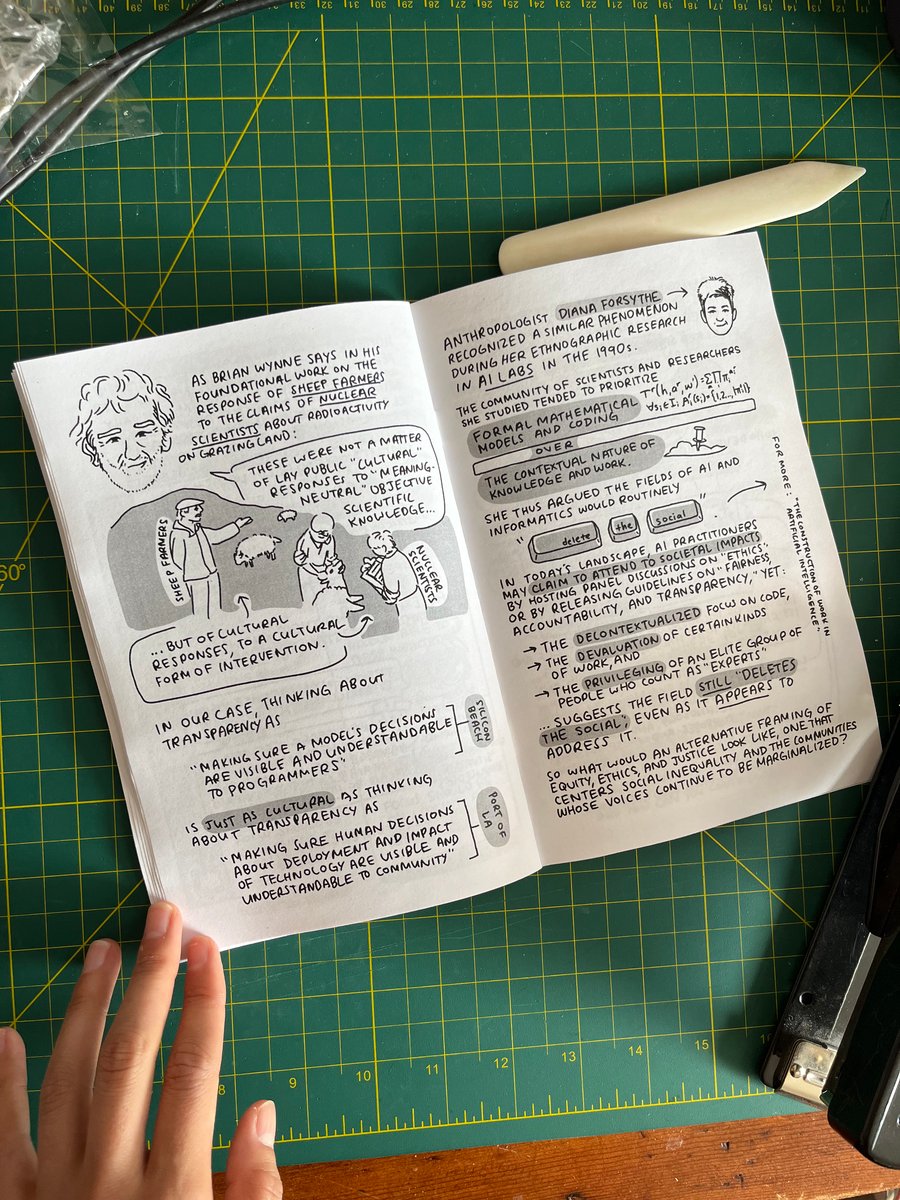 AS BRIAN WYNNE SAYS IN HIS
FOUNDATIONAL WORK ON THE
RESPONSE OF SHEEP FARMERS
TO THE CLAIMS OF NUCLEAR
SCIENTISTS ABOUT RADIOACTIVITY
ON GRAZING LAND:
THESE WERE NOT A MATTER
OF LAY PUBLIC "CULTURAL"
RESPONSES TO "MEANING-
NEUTRAL" OBJECTIVE
SCIENTIFIC
KNOWLEDGE...
SHEEP FARMERS
NUCLEAR
SCIENTISTS
...BUT OF CULTURAL
RESPONSES, TO A CULTURAL
FORM OF INTERVENTION.
IN OUR CASE, THINKING ABOUT
TRANSPARENCY AS
"MAKING SURE A MODEL'S DECISIONS
ARE VISIBLE AND UNDERSTANDABLE
TO PROGRAMMERS"
SILICON
BEACH
IS JUST AS CULTURAL AS THINKING
ABOUT TRANSPARENCY AS
"MAKING SURE HUMAN DECISIONS
ABOUT DEPLOYMENT AND IMPACT
OF TECHNOLOGY ARE VISIBLE AND
UNDERSTANDABLE TO COMMUNITY"
PORT OF
LA
ANTHROPOLOGIST DIANA FORSYTHE
RECOGNIZED A SIMILAR PHENOMENON
DURING HER ETHNOGRAPHIC RESEARCH
IN AI LABS IN THE 1990s.
THE COMMUNITY OF SCIENTISTS AND RESEARCHERS
SHE STUDIED TENDED TO PRIORITIZE
FORMAL MATHEMATICAL
MODELS AND CODING
OVER
THE CONTEXTUAL NATURE OF
KNOWLEDGE AND WORK.
SHE THUS ARGUED THE FIELDS OF AI AND
INFORMATICS WOULD ROUTINELY
"delete the social"
FOR MORE: "THE CONSTRUCTION OF WORK IN
ARTIFICIAL INTELLIGENCE"
IN TODAY'S LANDSCAPE, AI PRACTITIONERS
MAY CLAIM TO ATTEND TO SOCIETAL IMPACTS
BY HOSTING PANEL DISCUSSIONS ON "ETHICS"
OR BY RELEASING GUIDELINES ON "FAIRNESS,
ACCOUNTABILITY, AND TRANSPARENCY," YET:
→ THE DECONTEXTUALIZED FOCUS ON CODE,
→ THE DEVALUATION OF CERTAIN KINDS
OF WORK, AND
→ THE PRIVILEGING OF AN ELITE GROUP OF
PEOPLE WHO COUNT AS "EXPERTS"
...SUGGESTS THE FIELD STILL "DELETES
THE SOCIAL", EVEN AS IT APPEARS TO
ADDRESS IT.
SO WHAT WOULD AN ALTERNATIVE FRAMING OF
EQUITY, ETHICS, AND JUSTICE LOOK LIKE, ONE THAT
CENTERS SOCIAL INEQUALITY AND THE COMMUNITIES
WHOSE VOICES CONTINUE TO BE MARGINALIZED?
60°
8 9 10 11 12 13 14 15